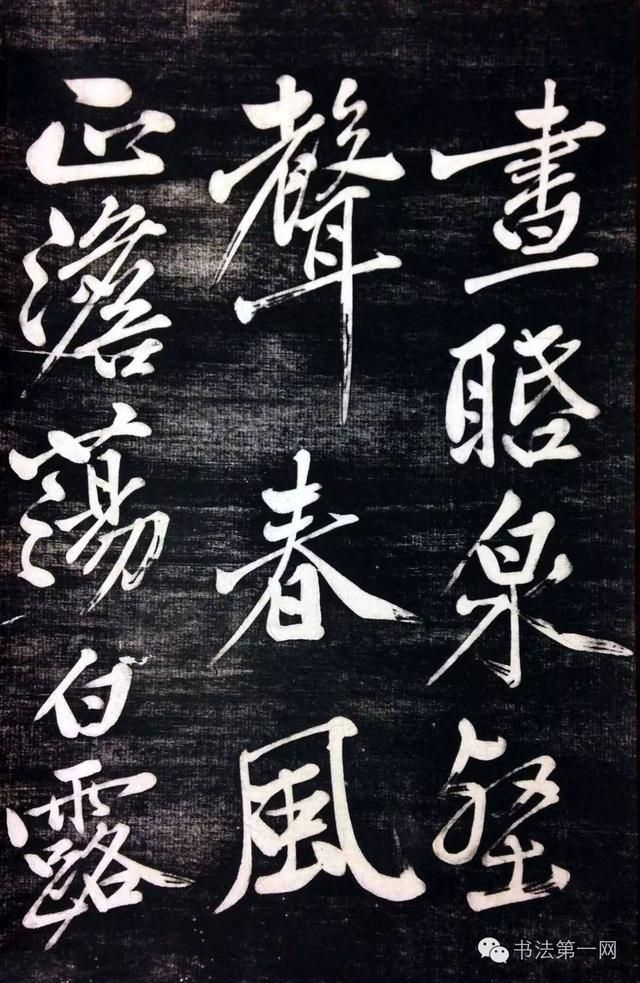 晝泉
聲春風
正澹蕩白露
书法第一网